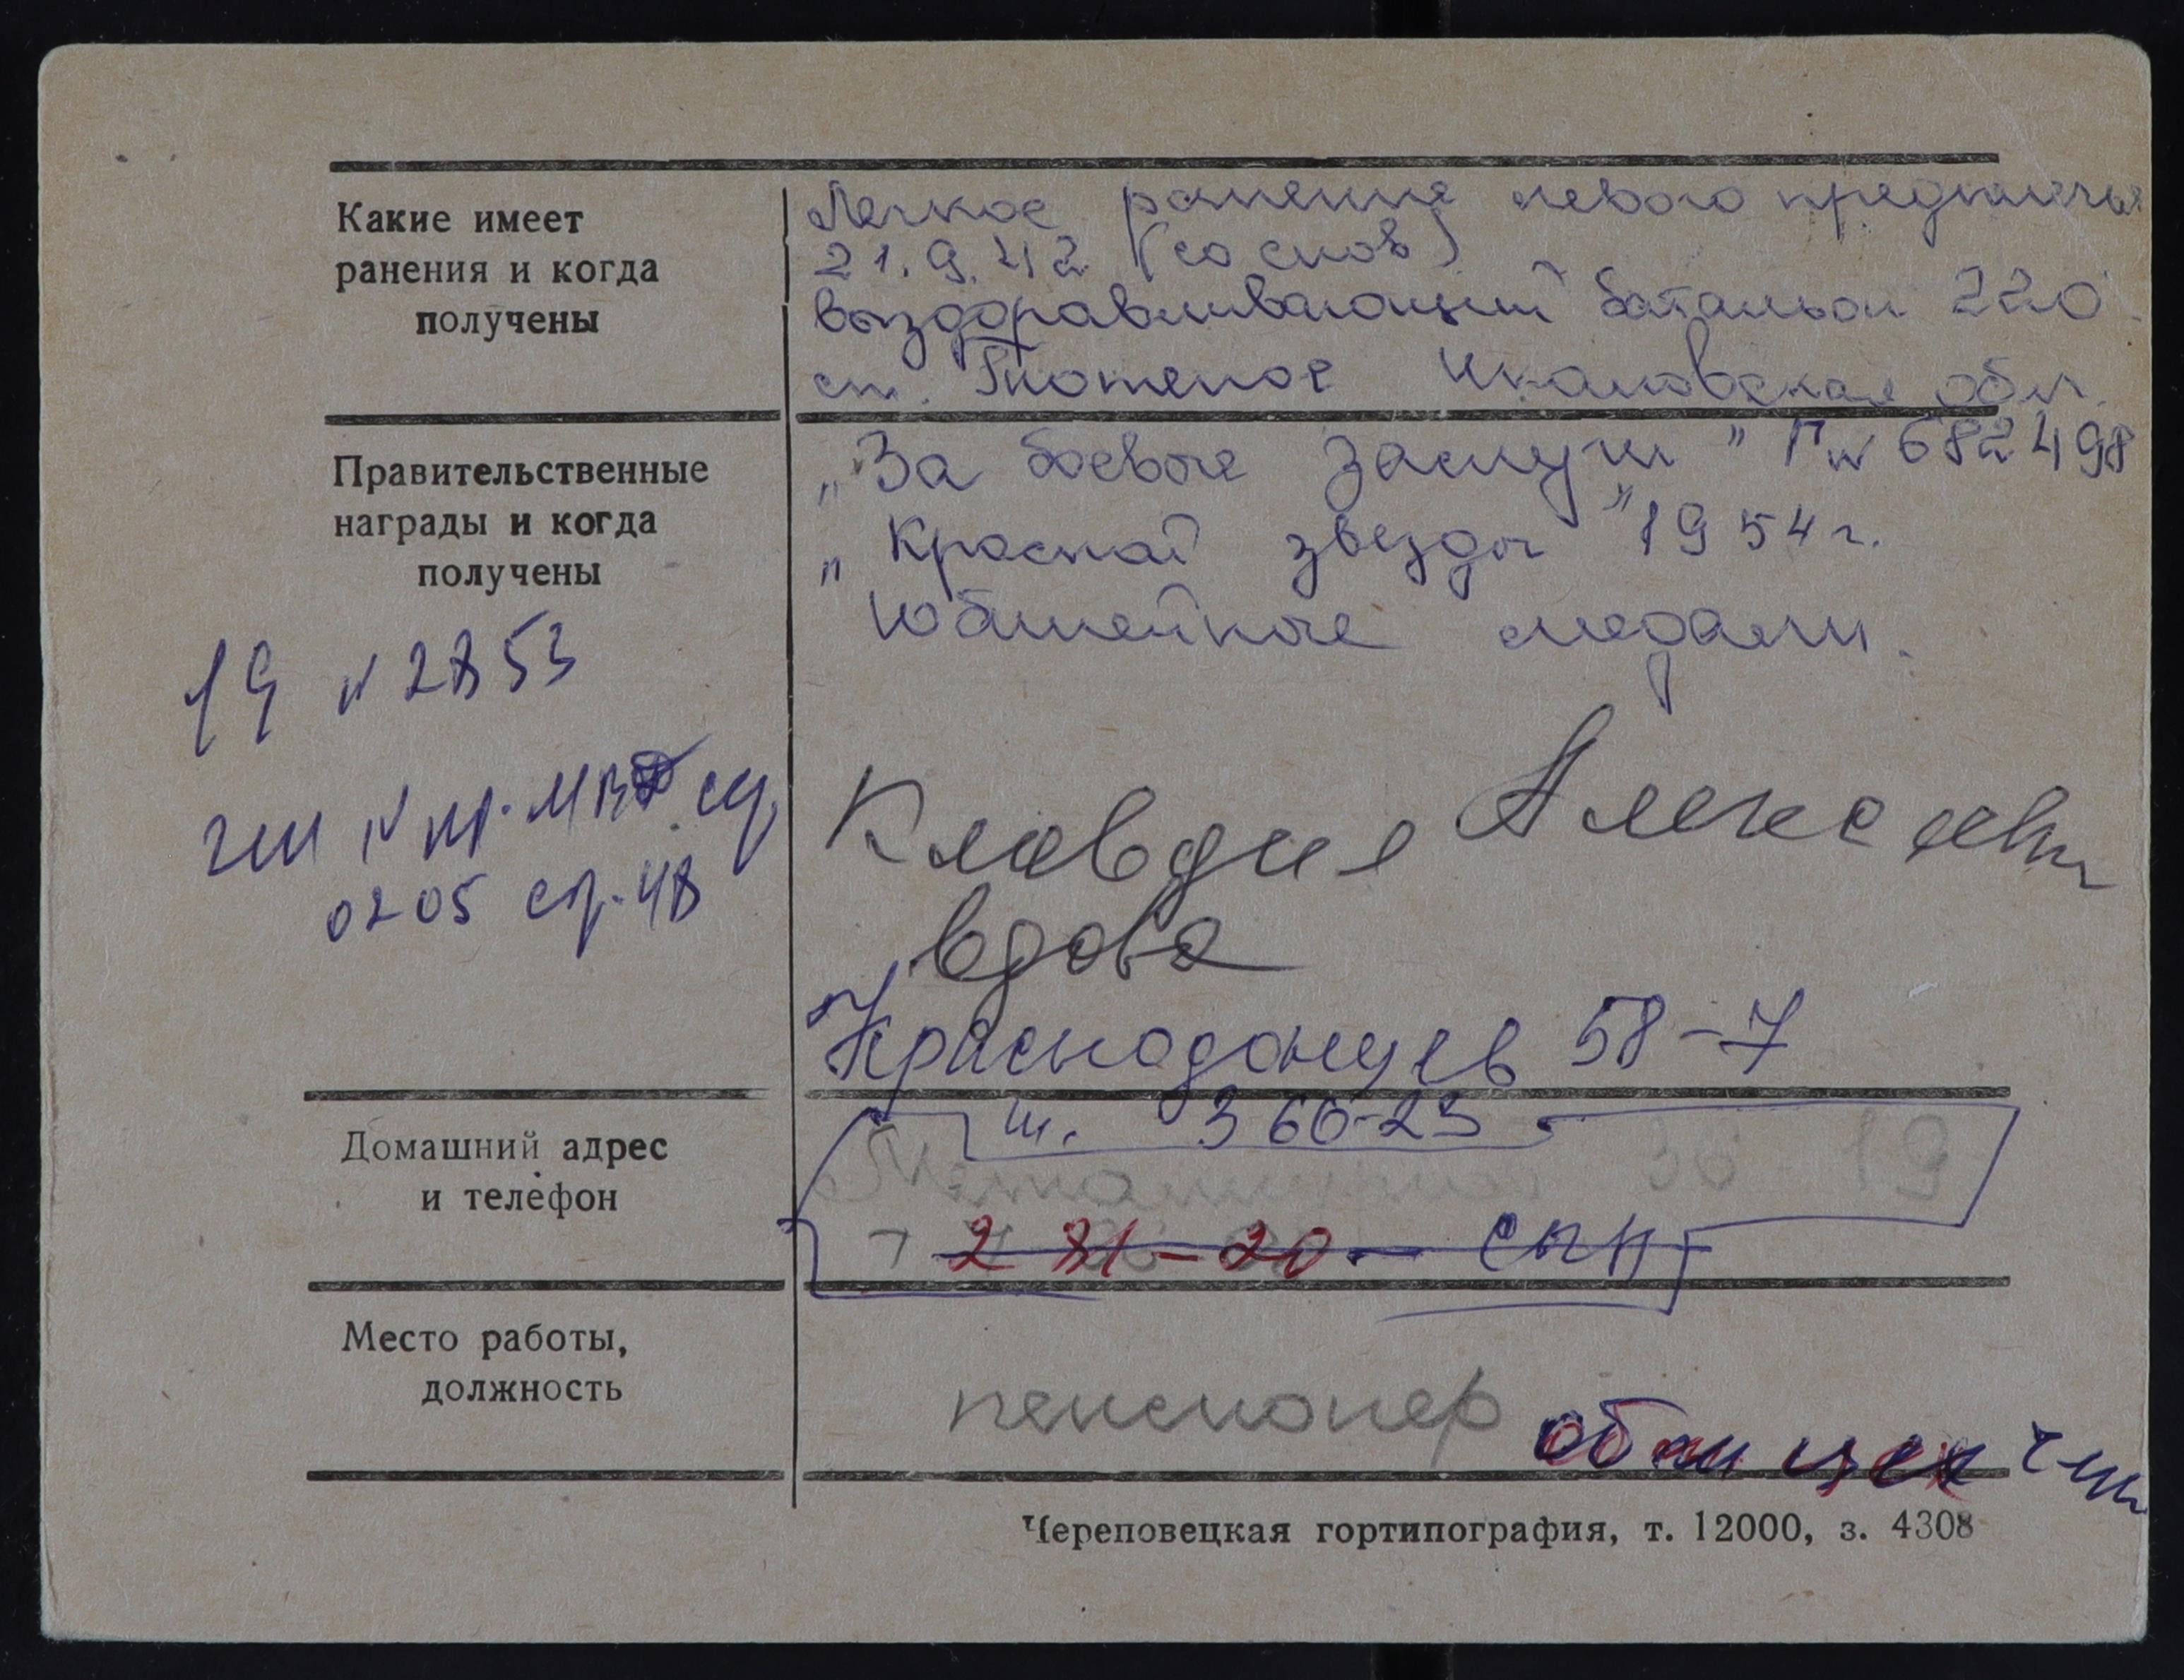 Какие имеет
ранения и когда
получены
Легкое ранение левого предплечья
21.9.42 (
выздоравливающий батальон 220
ст. Чкаловская обл.
Правительственные
награды и когда
получены
„За боевые заслуги" 682498
„Красной звезды" 1954 г.
Юбилейные медали.
19 N 2853
0205 стр. 48
Клавдия
вдова
Краснодонцев 58-7
Домашний адрес
и телефон
т. 3 60-23
36 19
2 81-20 — сын
Место работы,
должность
пенсионер
Череповецкая гортипография, т. 12000, з. 4308